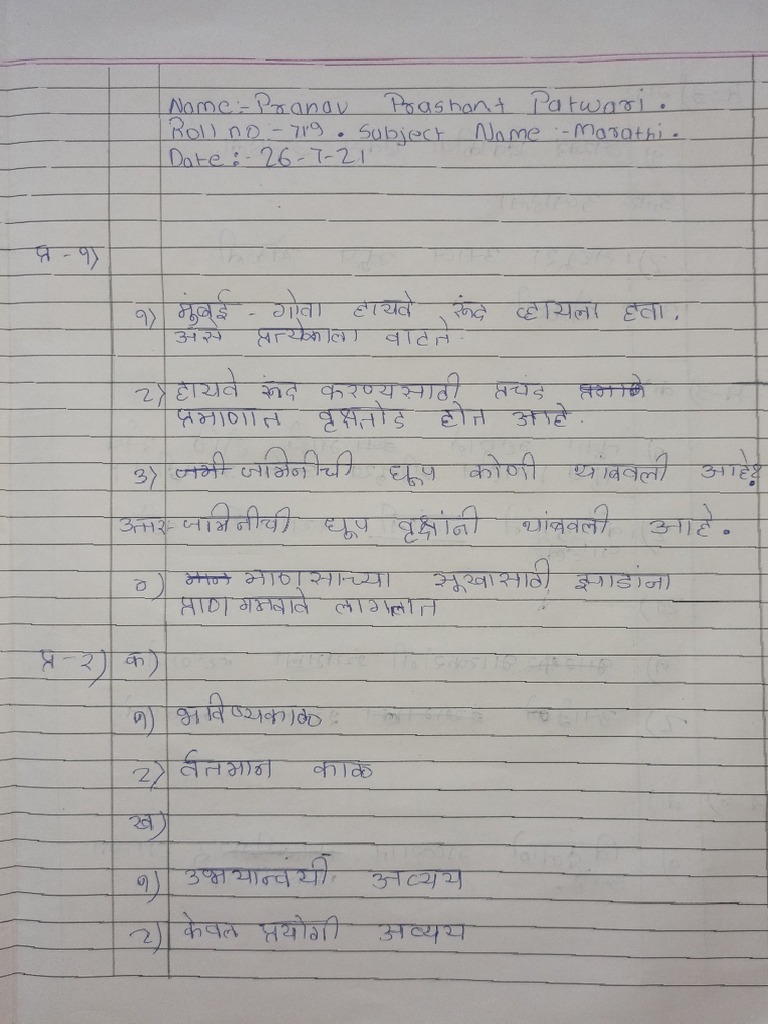 Name:- Pranav Prashant Patwari.
Roll no - 719. Subject Name :- Marathi.
Date :- 26-7-21
प्र - १)
१) मूंबई - गोवा हायवे रूंद व्हायला हवा.
असे प्रत्येकाला वाटते.
२) हायवे रूंद करण्यासाठी प्रचंड
प्रमाणात वृक्षतोड होत आहे.
३) जमिनीची धूप कोणी थांबवली आहे?
उत्तर:- जमिनीची धूप वृक्षांनी थांबवली आहे.
४) माणसाच्या सूखासाठी झाडांना
प्राण गमवावे लागलात
प्र - २) क)
१) भविष्यकाळ
२) वर्तमान काळ
ख)
१) उभयान्वयी अव्यय
२) केवल प्रयोगी अव्यय